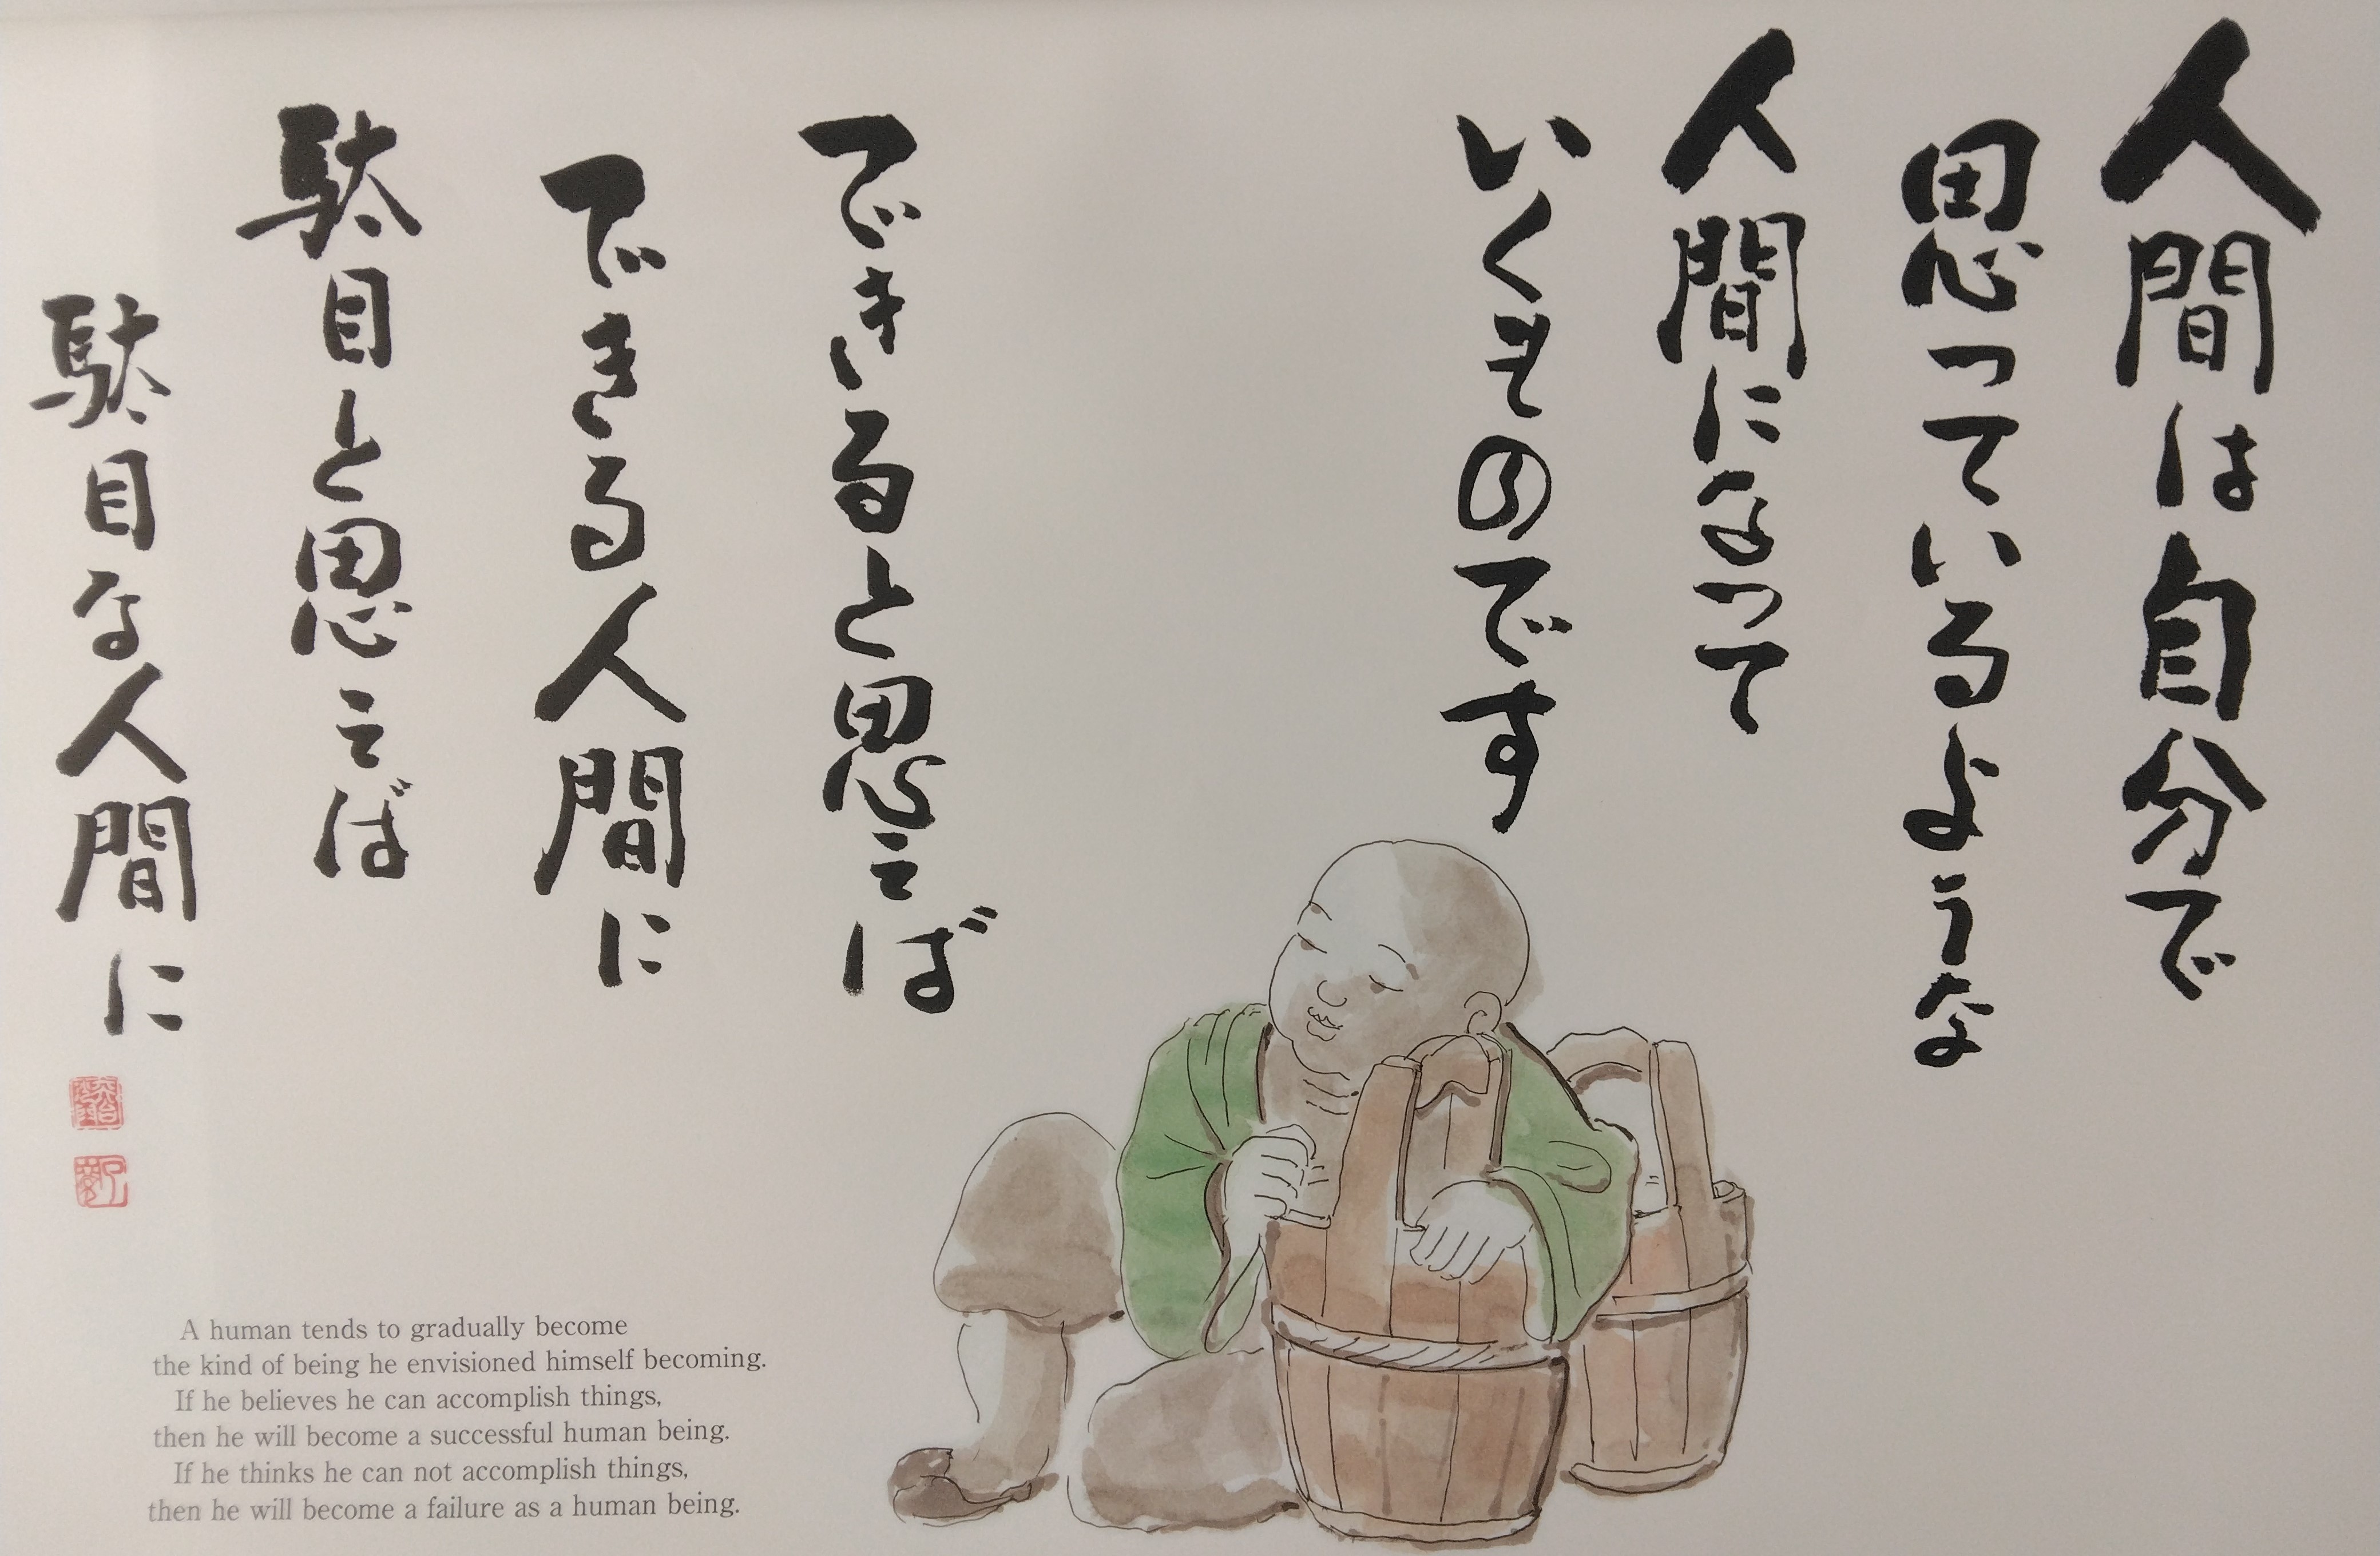 人間は自分で
思っているような
人間になって
いくものです
できると思えば
できる人間に
駄目と思えば
駄目な人間に
A human tends to gradually become
the kind of being he envisioned himself becoming.
If he believes he can accomplish things,
then he will become a successful human being.
If he thinks he can not accomplish things,
then he will become a failure as a human being.